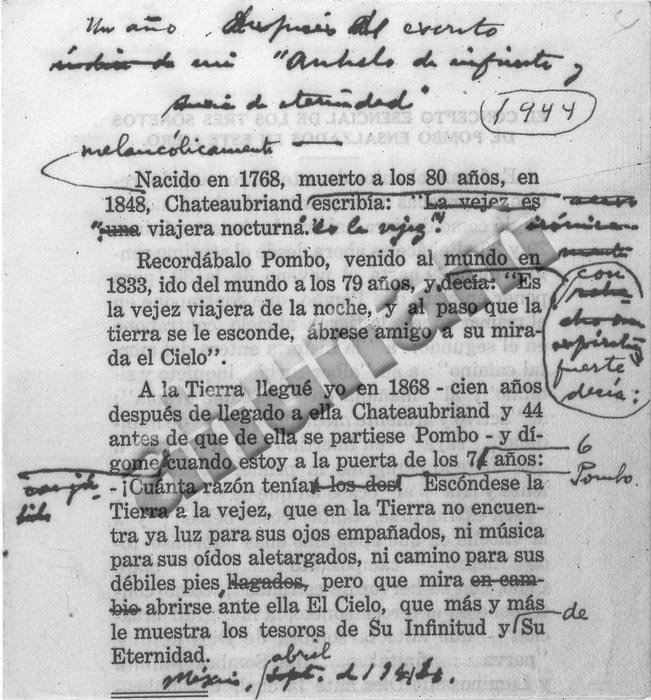 Un año después del escrito
mi "Anhelo de infinito y
ansia de eternidad"
1944
EL CONCEPTO ESENCIAL DE LOS TRES SONETOS
DE POMBO ENSALZADOS EN ESTE
melancólicamente
Nacido en 1768, muerto a los 80 años, en
1848, Chateaubriand escribía: "La vejez es
"una viajera nocturna". es la vejez".
irónica-
mente
Recordábalo Pombo, venido al mundo en
1833, ido del mundo a los 79 años, y decía: "Es
la vejez viajera de la noche, y al paso que la
tierra se le esconde, ábrese amigo a su mira-
da el Cielo".
con
espíritu
fuerte
decía:
A la Tierra llegué yo en 1868 - cien años
después de llegado a ella Chateaubriand y 44
antes de que de ella se partiese Pombo - y dí-
gome cuando estoy a la puerta de los 74 años:
6
- ¡Cuánta razón tenían los dos! Escóndese la
Pombo.
Tierra a la vejez, que en la Tierra no encuen-
tra ya luz para sus ojos empañados, ni música
para sus oídos aletargados, ni camino para sus
débiles pies llagados, pero que mira en cam-
bio abrirse ante ella El Cielo, que más y más
de
le muestra los tesoros de Su Infinitud y Su
Eternidad.
abril
México, Sept. de 1944.
CHUNAM